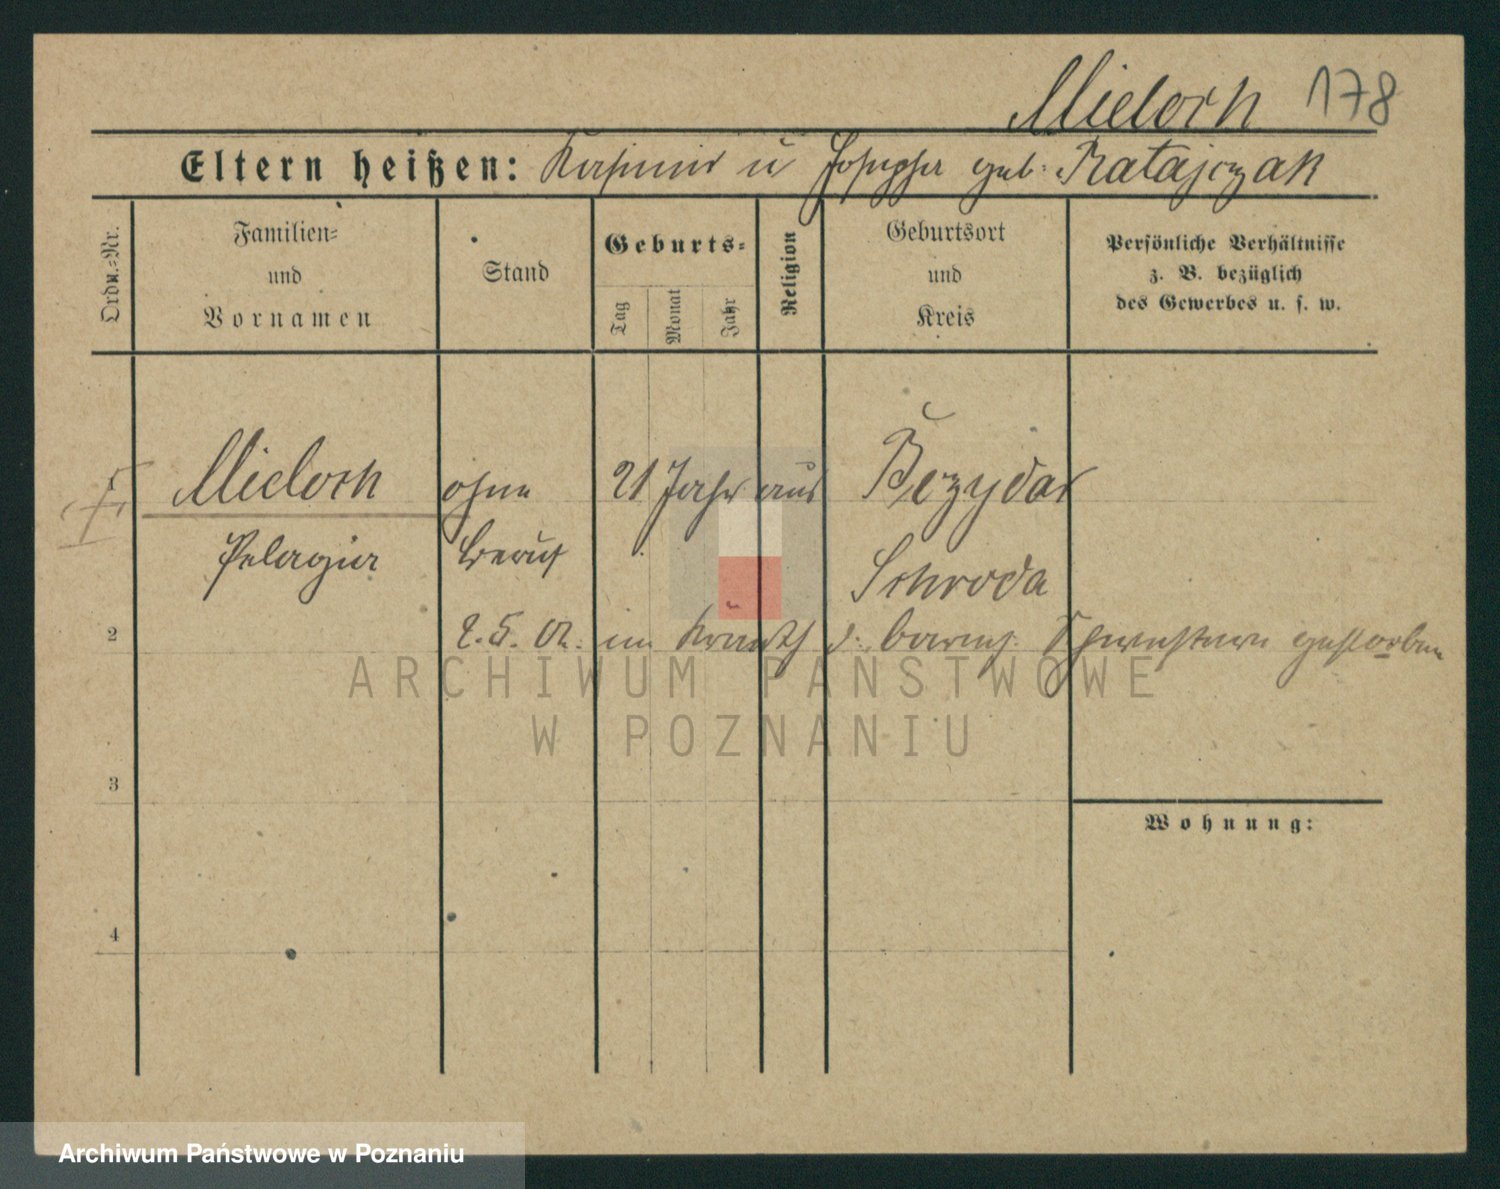 Mieloch 178
Eltern heißen: Kasimir u Josepha geb. Ratajczak
Ordn.-Nr.
Familien-
und
Vornamen
Stand
Geburts-
Tag
Monat
Jahr
Religion
Geburtsort
und
Kreis
Persönliche Verhältnisse
z. B. bezüglich
des Gewerbes u. s. w.
Mieloch ohne 21 Jahr aus Bezydar
Pelagia Beruf Schroda
2 2.5.02. im Krankh d. barmh. Schwestern gestorben
ARCHIWUM PAŃSTWOWE
W POZNANIU
3
Wohnung:
4
Archiwum Państwowe w Poznaniu